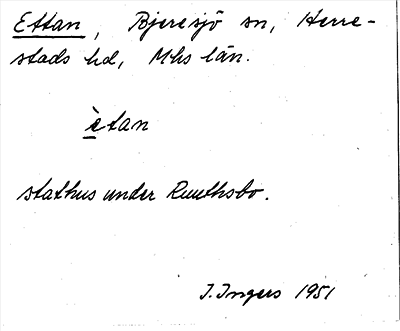 Ettan, Bjeresjö sn, Herre-
stads hd, Mhs län.
ètan
stathus under Ruuthsbo.
I. Ingers 1951